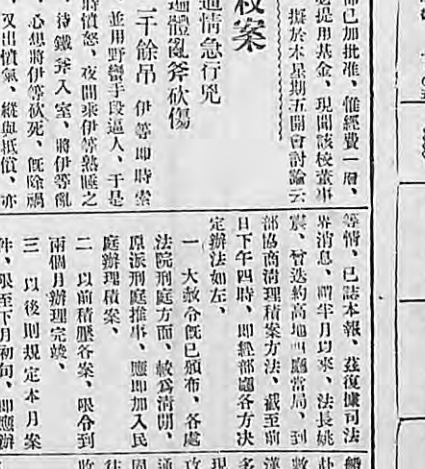 部已加批准、惟經費一層、
必提用基金、現聞該校董事
擬於本星期五開會討論云
案
情急行兇
遍體亂斧砍傷
二千餘吊 伊等即時索
並用野蠻手段逼人、于是
時憤怒、夜間乘伊等熟睡之
持鐵斧入室、將伊等亂
心想將伊等砍死、旣除禍
又出憤氣、縱與抵償、亦
等情、已誌本報、茲復據司法
界消息、謂半月以來、法長姚
震、曾迭約高地四廳當局、到
部協商清理積案方法、截至前
日下午四時、卽經部廳各方决
定辦法如左、
一 大赦令旣已頒布、各處
法院刑庭方面、較爲清閒、
原派刑庭推事、應卽加入民
庭辦理積案、
二 以前積壓各案、限令到
兩個月辦理完竣、
三 以後則規定本月案
件、限至下月初旬、卽應辦